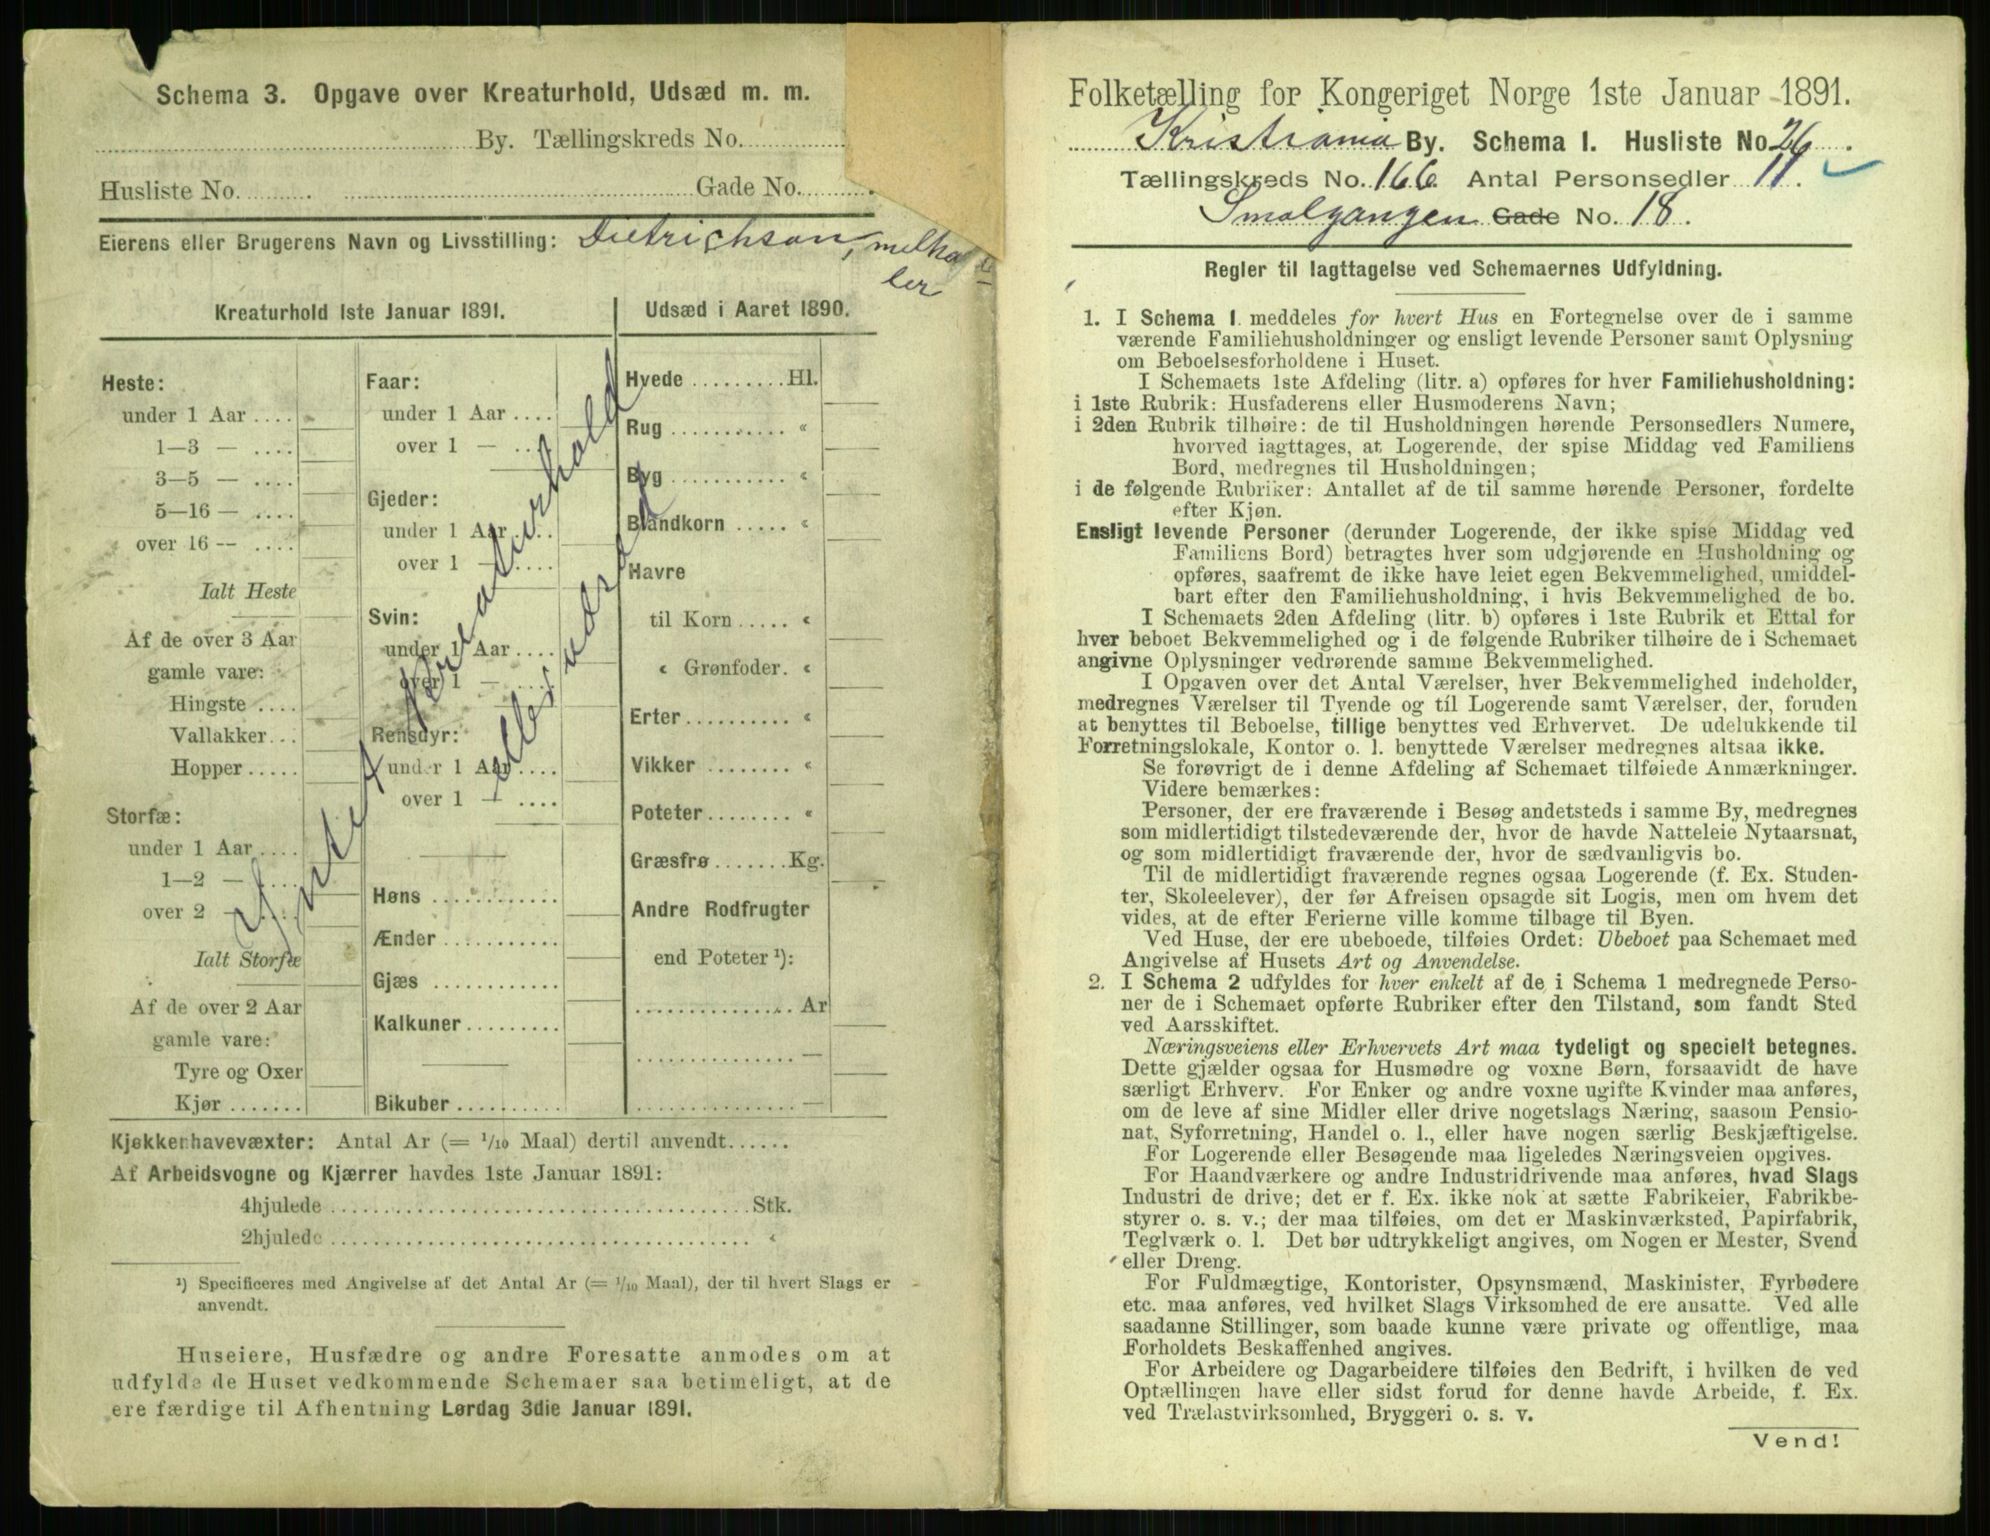 Schema 3. Opgave over Kreaturhold, Udsæd m. m.
By. Tællingskreds No.
Husliste No. Gade No.
Eierens eller Brugerens Navn og Livsstilling: Dietrichson,
ler
Kreaturhold 1ste Januar 1891.
Udsæd i Aaret 1890.
Heste:
under 1 Aar ....
1—3 — ....
3—5 — ....
5—16 — ....
over 16 — ....
Ialt Heste
Af de over 3 Aar
gamle vare:
Hingste ....
Vallakker...
Hopper.....
Storfæ:
under 1 Aar ....
1—2 — ....
over 2 — ....
Ialt Storfæ
Af de over 2 Aar
gamle vare:
Tyre og Oxer
Kjør .......
Faar:
under 1 Aar ....
over 1 — ....
Gjeder:
under 1 Aar ....
over 1 — ....
Svin:
under 1 Aar ....
over 1 — ....
Rensdyr:
under 1 Aar ....
over 1 — ....
Høns
Ænder
Gjæs
Kalkuner
Bikuber
Intet Kreaturhold
eller udsæd
Hvede ......... Hl.
Rug .......... «
Byg .......... «
Blandkorn ..... «
Havre
til Korn ..... «
« Grønfoder. «
Erter ......... «
Vikker ........ «
Poteter ........ «
Græsfrø ....... Kg.
Andre Rodfrugter
end Poteter ¹):
............... Ar
............... —
............... —
Kjøkkenhavevæxter: Antal Ar (= 1/10 Maal) dertil anvendt......
Af Arbeidsvogne og Kjærrer havdes 1ste Januar 1891:
4hjulede ........ Stk.
2hjulede ........ «
¹) Specificeres med Angivelse af det Antal Ar (= 1/10 Maal), der til hvert Slags er
anvendt.
Huseiere, Husfædre og andre Foresatte anmodes om at
udfylde de Huset vedkommende Schemaer saa betimeligt, at de
ere færdige til Afhentning Lørdag 3die Januar 1891.
Folketælling for Kongeriget Norge 1ste Januar 1891.
Kristiania By. Schema 1. Husliste No. 26.
Tællingskreds No. 166. Antal Personsedler 11.
Smalgangen Gade No. 18.
Regler til Iagttagelse ved Schemaernes Udfyldning.
1. I Schema 1. meddeles for hvert Hus en Fortegnelse over de i samme
værende Familiehusholdninger og ensligt levende Personer samt Oplysning
om Beboelsesforholdene i Huset.
I Schemaets 1ste Afdeling (litr. a) opføres for hver Familiehusholdning:
i 1ste Rubrik: Husfaderens eller Husmoderens Navn;
i 2den Rubrik tilhøire: de til Husholdningen hørende Personsedlers Numere,
hvorved iagttages, at Logerende, der spise Middag ved Familiens
Bord, medregnes til Husholdningen;
i de følgende Rubriker: Antallet af de til samme hørende Personer, fordelte
efter Kjøn.
Ensligt levende Personer (derunder Logerende, der ikke spise Middag ved
Familiens Bord) betragtes hver som udgjørende en Husholdning og
opføres, saafremt de ikke have leiet egen Bekvemmelighed, umiddel-
bart efter den Familiehusholdning, i hvis Bekvemmelighed de bo.
I Schemaets 2den Afdeling (litr. b) opføres i 1ste Rubrik et Ettal for
hver beboet Bekvemmelighed og i de følgende Rubriker tilhøire de i Schemaet
angivne Oplysninger vedrørende samme Bekvemmelighed.
I Opgaven over det Antal Værelser, hver Bekvemmelighed indeholder,
medregnes Værelser til Tyende og til Logerende samt Værelser, der, foruden
at benyttes til Beboelse, tillige benyttes ved Erhvervet. De udelukkende til
Forretningslokale, Kontor o. l. benyttede Værelser medregnes altsaa ikke.
Se forøvrigt de i denne Afdeling af Schemaet tilføiede Anmærkninger.
Videre bemærkes:
Personer, der ere fraværende i Besøg andetsteds i samme By, medregnes
som midlertidigt tilstedeværende der, hvor de havde Natteleie Nytaarsnat,
og som midlertidigt fraværende der, hvor de sædvanligvis bo.
Til de midlertidigt fraværende regnes ogsaa Logerende (f. Ex. Studen-
ter, Skoleelever), der før Afreisen opsagde sit Logis, men om hvem det
vides, at de efter Ferierne ville komme tilbage til Byen.
Ved Huse, der ere ubeboede, tilføies Ordet: Ubeboet paa Schemaet med
Angivelse af Husets Art og Anvendelse.
2. I Schema 2 udfyldes for hver enkelt af de i Schema 1 medregnede Perso-
ner de i Schemaet opførte Rubriker efter den Tilstand, som fandt Sted
ved Aarsskiftet.
Næringsveiens eller Erhvervets Art maa tydeligt og specielt betegnes.
Dette gjælder ogsaa for Husmødre og voxne Børn, forsaavidt de have
særligt Erhverv. For Enker og andre voxne ugifte Kvinder maa anføres,
om de leve af sine Midler eller drive nogetslags Næring, saasom Pensio-
nat, Syforretning, Handel o. l., eller have nogen særlig Beskjæftigelse.
For Logerende eller Besøgende maa ligeledes Næringsveien opgives.
For Haandværkere og andre Industridrivende maa anføres, hvad Slags
Industri de drive; det er f. Ex. ikke nok at sætte Fabrikeier, Fabrikbe-
styrer o. s. v.; der maa tilføies, om det er Maskinværksted, Papirfabrik,
Teglværk o. l. Det bør udtrykkeligt angives, om Nogen er Mester, Svend
eller Dreng.
For Fuldmægtige, Kontorister, Opsynsmænd, Maskinister, Fyrbødere
etc. maa anføres, ved hvilket Slags Virksomhed de ere ansatte. Ved alle
saadanne Stillinger, som baade kunne være private og offentlige, maa
Forholdets Beskaffenhed angives.
For Arbeidere og Dagarbeidere tilføies den Bedrift, i hvilken de ved
Optællingen have eller sidst forud for denne havde Arbeide, f. Ex.
ved Trælastvirksomhed, Bryggeri o. s. v.
Vend!